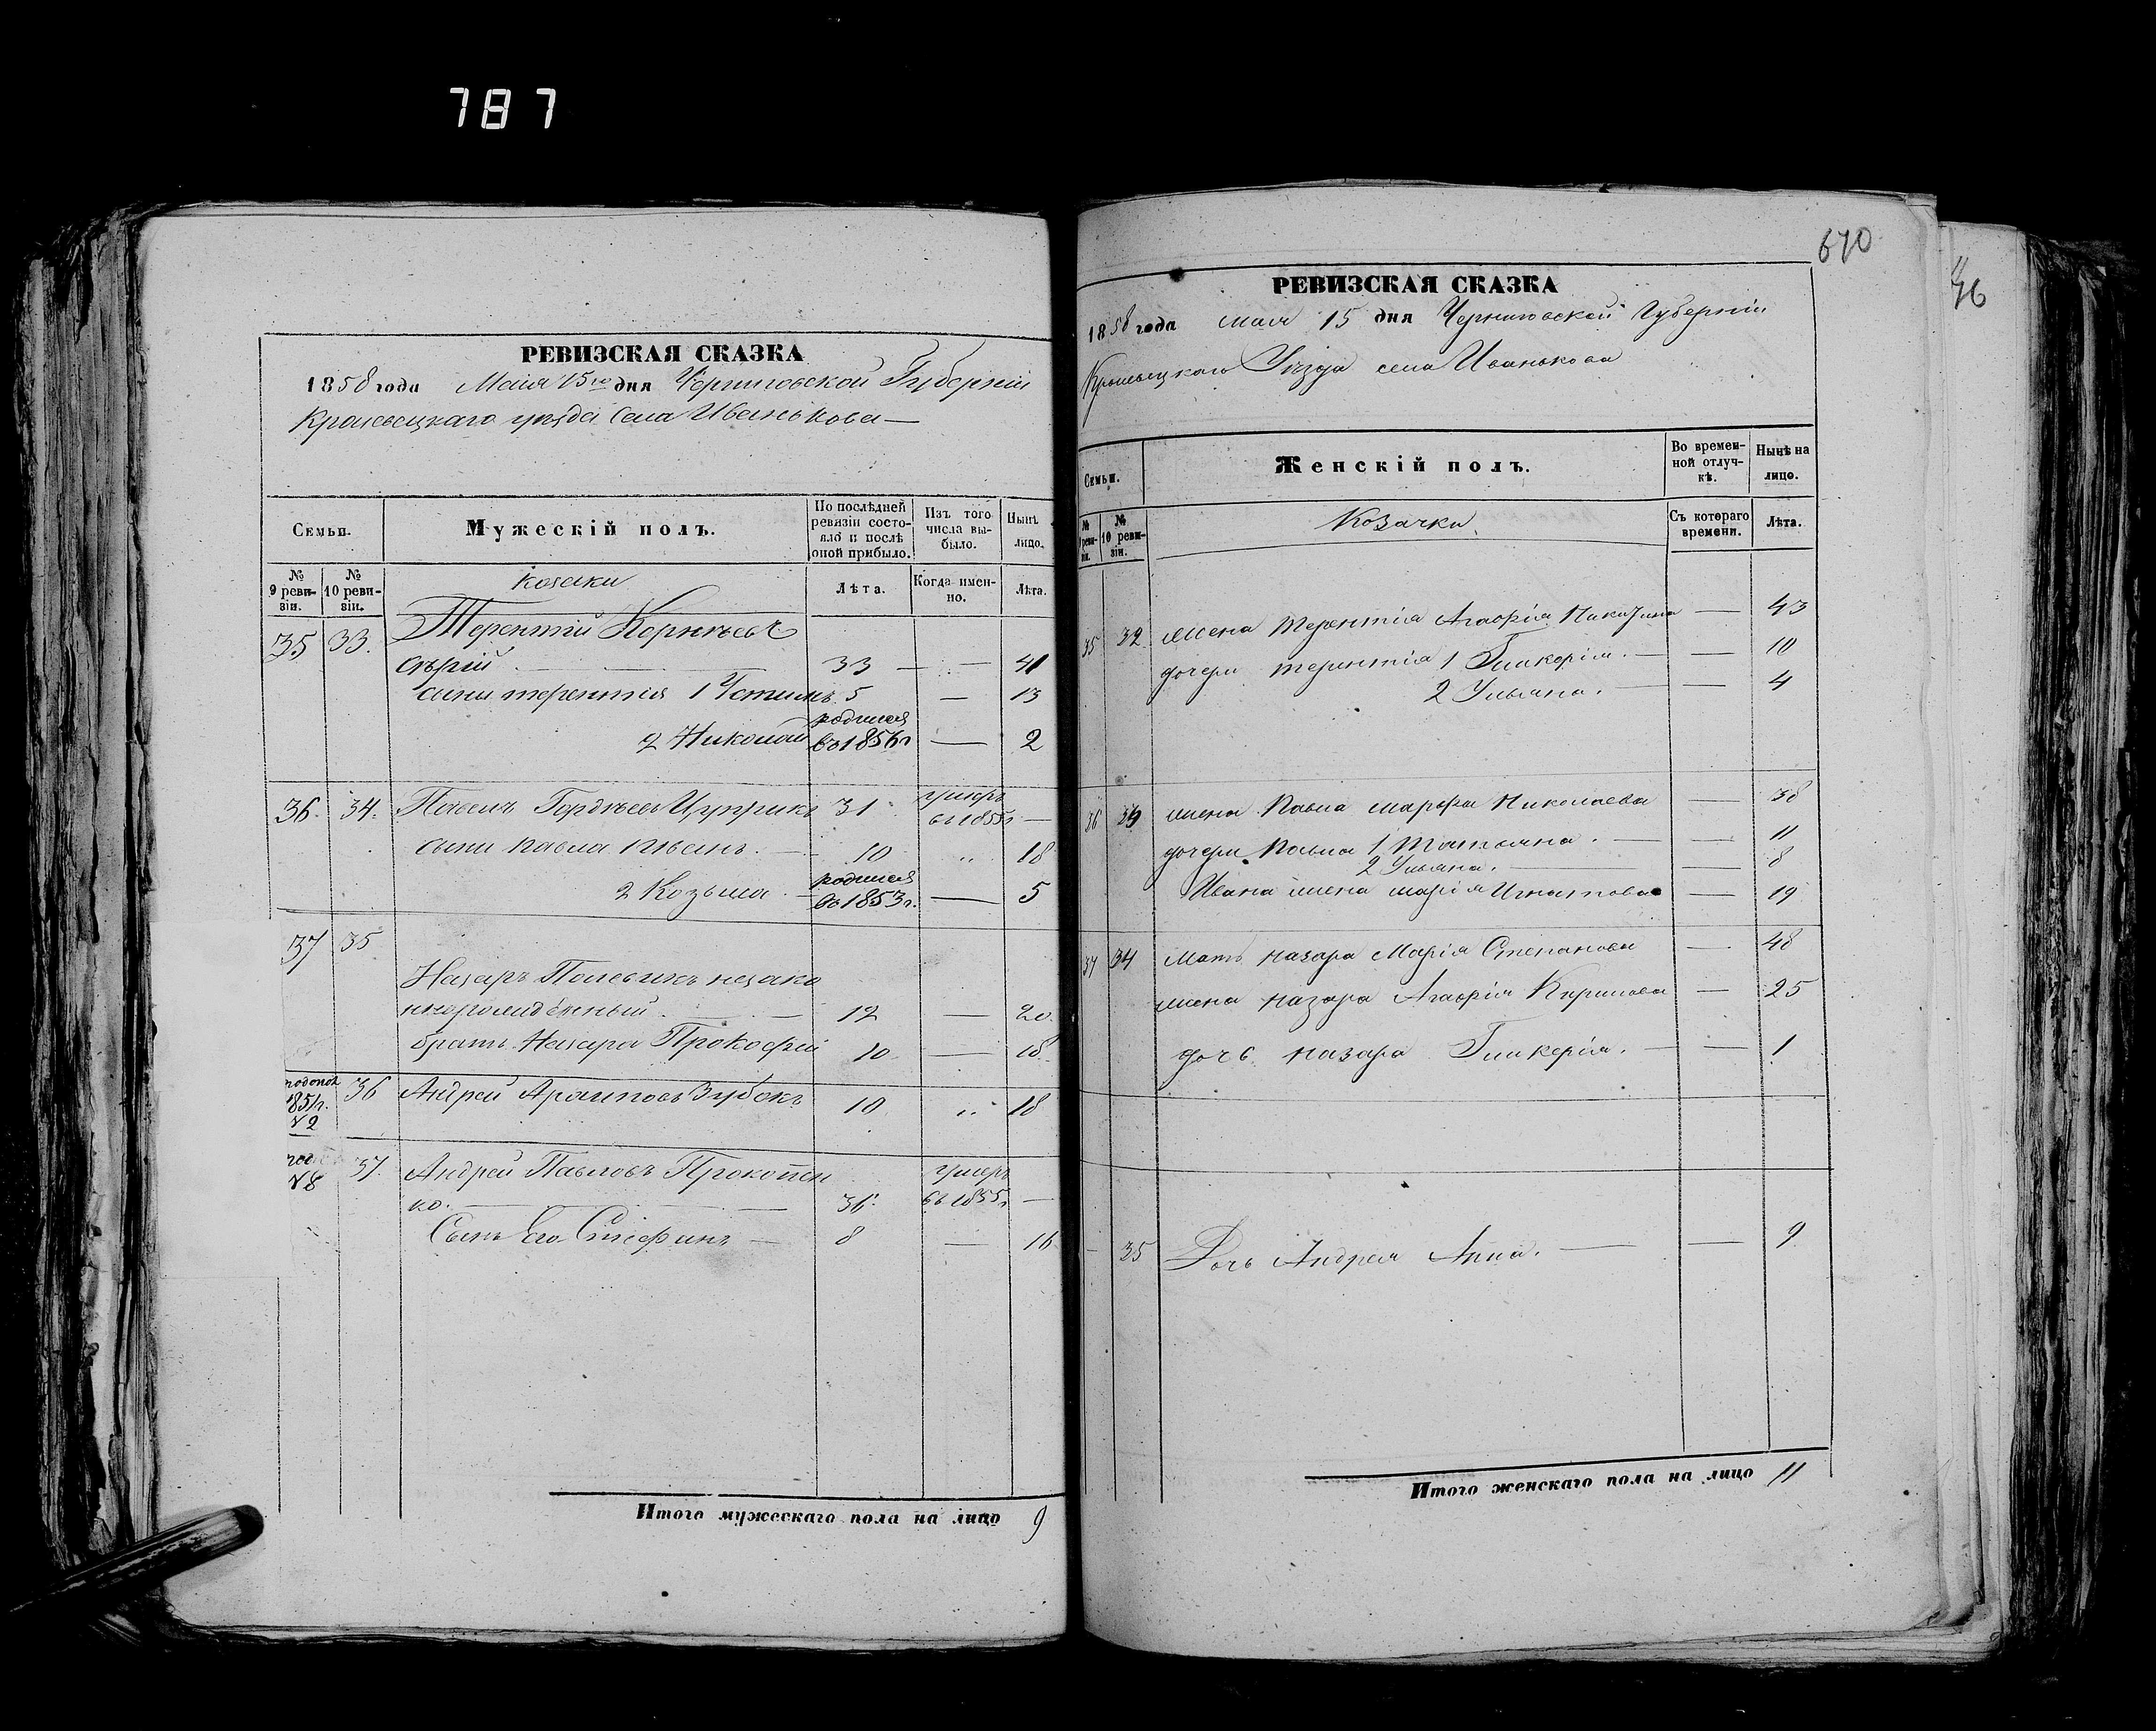 787
РЕВИЗСКАЯ СКАЗКА
1858 года Маія 15го дня Черниговской Губерніи
Кролевецкаго уѣзда Села Иванькова
Семьи.
Мужескій полъ.
По послѣдней ревизіи состояло и послѣ оной прибыло.
Изъ того числа выбыло.
Нынѣ лицо.
№ 9 ревизіи.
№ 10 ревизіи.
Козаки
Лѣта.
Когда именно.
Лѣта.
35 33. Терентій Корнѣевъ
Сѣрій 33 — 41
сыни терентія 1 Устинъ 5 — 13
2 Николай родился въ 1856г — 2
36. 34. Павелъ Гордѣевъ Цуприкъ 31 умеръ въ 1855г —
сыни павла Ивань 10 „ 18
2 Козьма родился въ 1853г. — 5
37 35
Назаръ Полевикъ незако
ннорожденный 12 — 20
братъ Назара Прокофій 10 — 18
1851г. №2 36 Андрей Архиповъ Зубокъ 10 „ 18
№8 37. Андрей Павловъ Прокопен
ко. 36. умеръ въ 1855г —
Сынъ Его Стефанъ — 8 — 16
Итого мужескаго пола на лицо 9
670
46
РЕВИЗСКАЯ СКАЗКА
1858 года мая 15 дня Черниговской Губерніи
Кролевецкаго Уѣзда села Иванькова
Семьи.
Женскій полъ.
Во временной отлучкѣ.
Нынѣ на лицо.
№ ревизіи.
№ 10 ревизіи.
Козачки
Съ котораго времени.
Лѣта.
35 32 жена терентія Агафія Никитина — 43
дочери терентія 1 Гликерія. — — 10
2 Ульяна. — — 4
36 33 жена Павла марфа Николаева — 38
дочери Павла 1 Татьяна. — 11
2 Ульяна. — — 8
Ивана жена марія Игнатова — 19
37 34 Мать назара Марія Степанова — 48
жена назара Агафія Кирилова — 25
дочь назара Гликерія. — — 1
— 35 Дочь Андрея Анна. — — 9
Итого женскаго пола на лицо 11